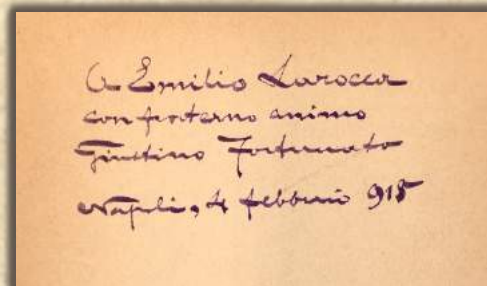 A Emilio Larocca
con fraterno animo
Giustino Fortunato
Napoli, 4 febbraio 915